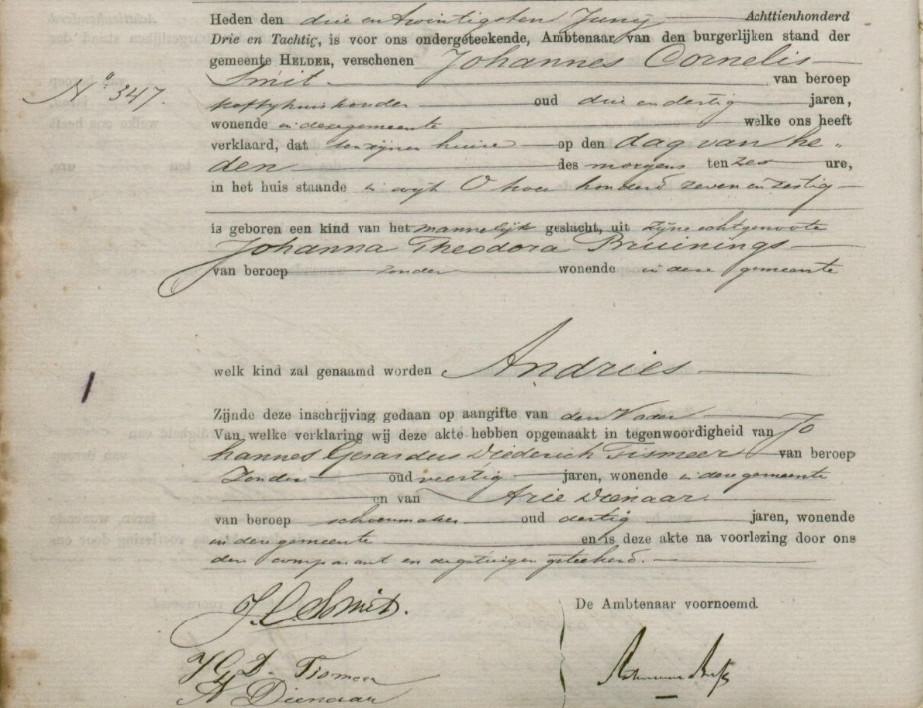 Heden den drie en twintigsten Junij Achttienhonderd
Drie en Tachtig, is voor ons ondergeteekende, Ambtenaar van den burgerlijken stand der
gemeente HELDER, verschenen Johannes Cornelis
No 347.
Smit van beroep
koffyhuishouder oud drie en dertig jaren,
wonende in deze gemeente welke ons heeft
verklaard, dat ten zijnen huize op den dag van he-
den des morgens ten zes ure,
in het huis staande in wijk O twee honderd zeven en zestig
is geboren een kind van het mannelijk geslacht, uit zijne echtgenoote
Johanna Theodora Bruinings
van beroep zonder wonende in deze gemeente
welk kind zal genaamd worden Andries
Zijnde deze inschrijving gedaan op aangifte van den Vader
Van welke verklaring wij deze akte hebben opgemaakt in tegenwoordigheid van Jo
hannes Gerardus Diederich Tismeer van beroep
Zonder oud veertig jaren, wonende in deze gemeente
en van Arie Dienaar
van beroep schoenmaker oud dertig jaren, wonende
in deze gemeente en is deze akte na voorlezing door ons
den comparant en de getuigen geteekend.
J. C. Smit.
De Ambtenaar voornoemd
J G D. Tismeer
A Dienaar